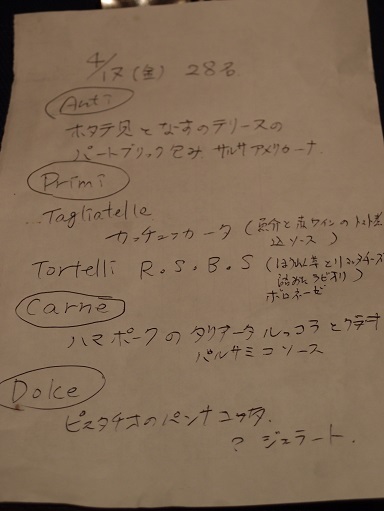 4/17(金) 28名
Anti
ホタテ貝となすのテリーヌの
パートブリック包み サルサアメリカーナ
Primi
Tagliatelle
カッチュッカータ (魚介と赤ワインのトマト煮
込ソース)
Tortelli R.S.B.S (ほうれん草とリコッタチーズ
詰めたラビオリ)
ボロネーゼ
Carne
ハマポークのタリアータ ルッコラと
バルサミコソース
Dolce
ピスタチオのパンナコッタ.
? ジェラート.